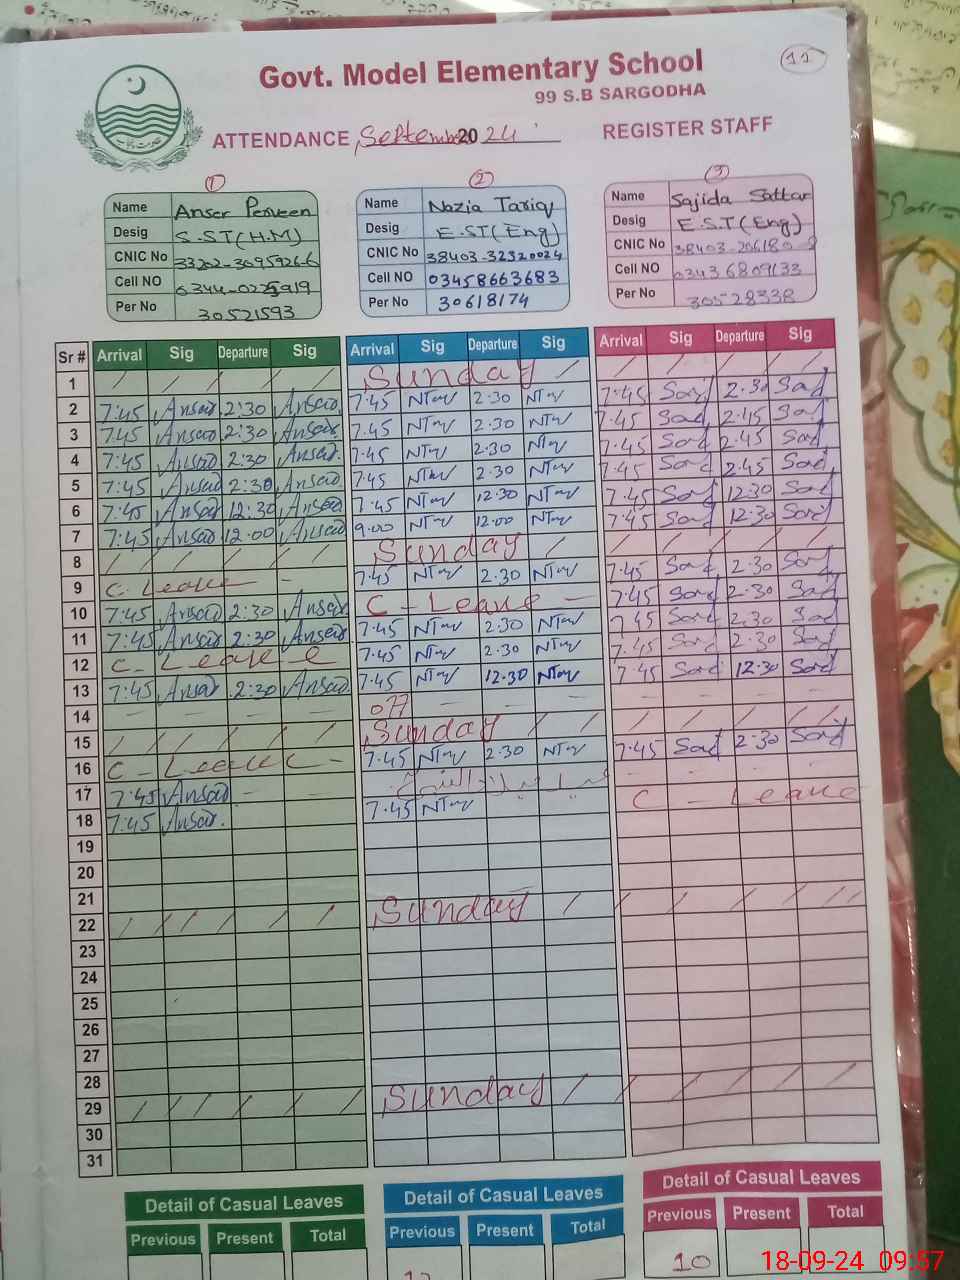 11
Govt. Model Elementary School
99 S.B SARGODHA
ATTENDANCE September 2024 REGISTER STAFF
1 2 3
Name Anser Perveen Name Nazia Tariq Name Sajida Sattar
Desig S.ST(H.M) Desig E.ST(Eng) Desig E.S.T(Eng)
CNIC No CNIC No 38403-32320024 CNIC No
Cell NO Cell NO 03458663683 Cell NO 03436809133
Per No 30521593 Per No 30618174 Per No 30528338
Sr # Arrival Sig Departure Sig Arrival Sig Departure Sig Arrival Sig Departure Sig
1 / / / / Sunday / / / / /
2 7:45 Ansar 2:30 Ansar 7.45 NTar 2.30 NTar 7.45 Sajd 2.30 Sajd
3 7:45 Ansar 2:30 Ansar 7.45 NTar 2.30 NTar 7.45 Sajd 2.45 Sajd
4 7:45 Ansar 2:30 Ansar 7.45 NTar 2.30 NTar 7.45 Sajd 2.45 Sajd
5 7:45 Ansar 2:30 Ansar 7.45 NTar 2.30 NTar 7.45 Sajd 2.45 Sajd
6 7:45 Ansar 12:30 Ansar 7.45 NTar 12.30 NTar 7.45 Sajd 12.30 Sajd
7 7:45 Ansar 12.00 Ansar 9.00 NTar 12.00 NTar 7.45 Sajd 12.30 Sajd
8 / / / / Sunday / / / / /
9 C. Leave - 7.45 NTar 2.30 NTar 7.45 Sajd 2.30 Sajd
10 7:45 Ansar 2:30 Ansar C - Leave - 7.45 Sajd 2.30 Sajd
11 7:45 Ansar 2:30 Ansar 7.45 NTar 2.30 NTar 7.45 Sajd 2.30 Sajd
12 C - Leave 7.45 NTar 2.30 NTar 7.45 Sajd 2.30 Sajd
13 7:45 Ansar 2:30 Ansar 7.45 NTar 12.30 NTar 7.45 Sajd 12.30 Sajd
14 - - - - off - - - - - - -
15 / / / / Sunday / / / / / /
16 C - Leave - 7.45 NTar 2.30 NTar 7.45 Sajd 2.30 Sajd
17 7:45 Ansar - - عید میلاد النبی - - - -
18 7:45 Ansar 7.45 NTar C - Leave
19
20
21
22 / / / / / Sunday / / / / / /
23
24
25
26
27
28
29 / / / / / / Sunday / / / / / /
30
31
Detail of Casual Leaves Detail of Casual Leaves Detail of Casual Leaves
Previous Present Total Previous Present Total Previous Present Total
10
18-09-24 09:57